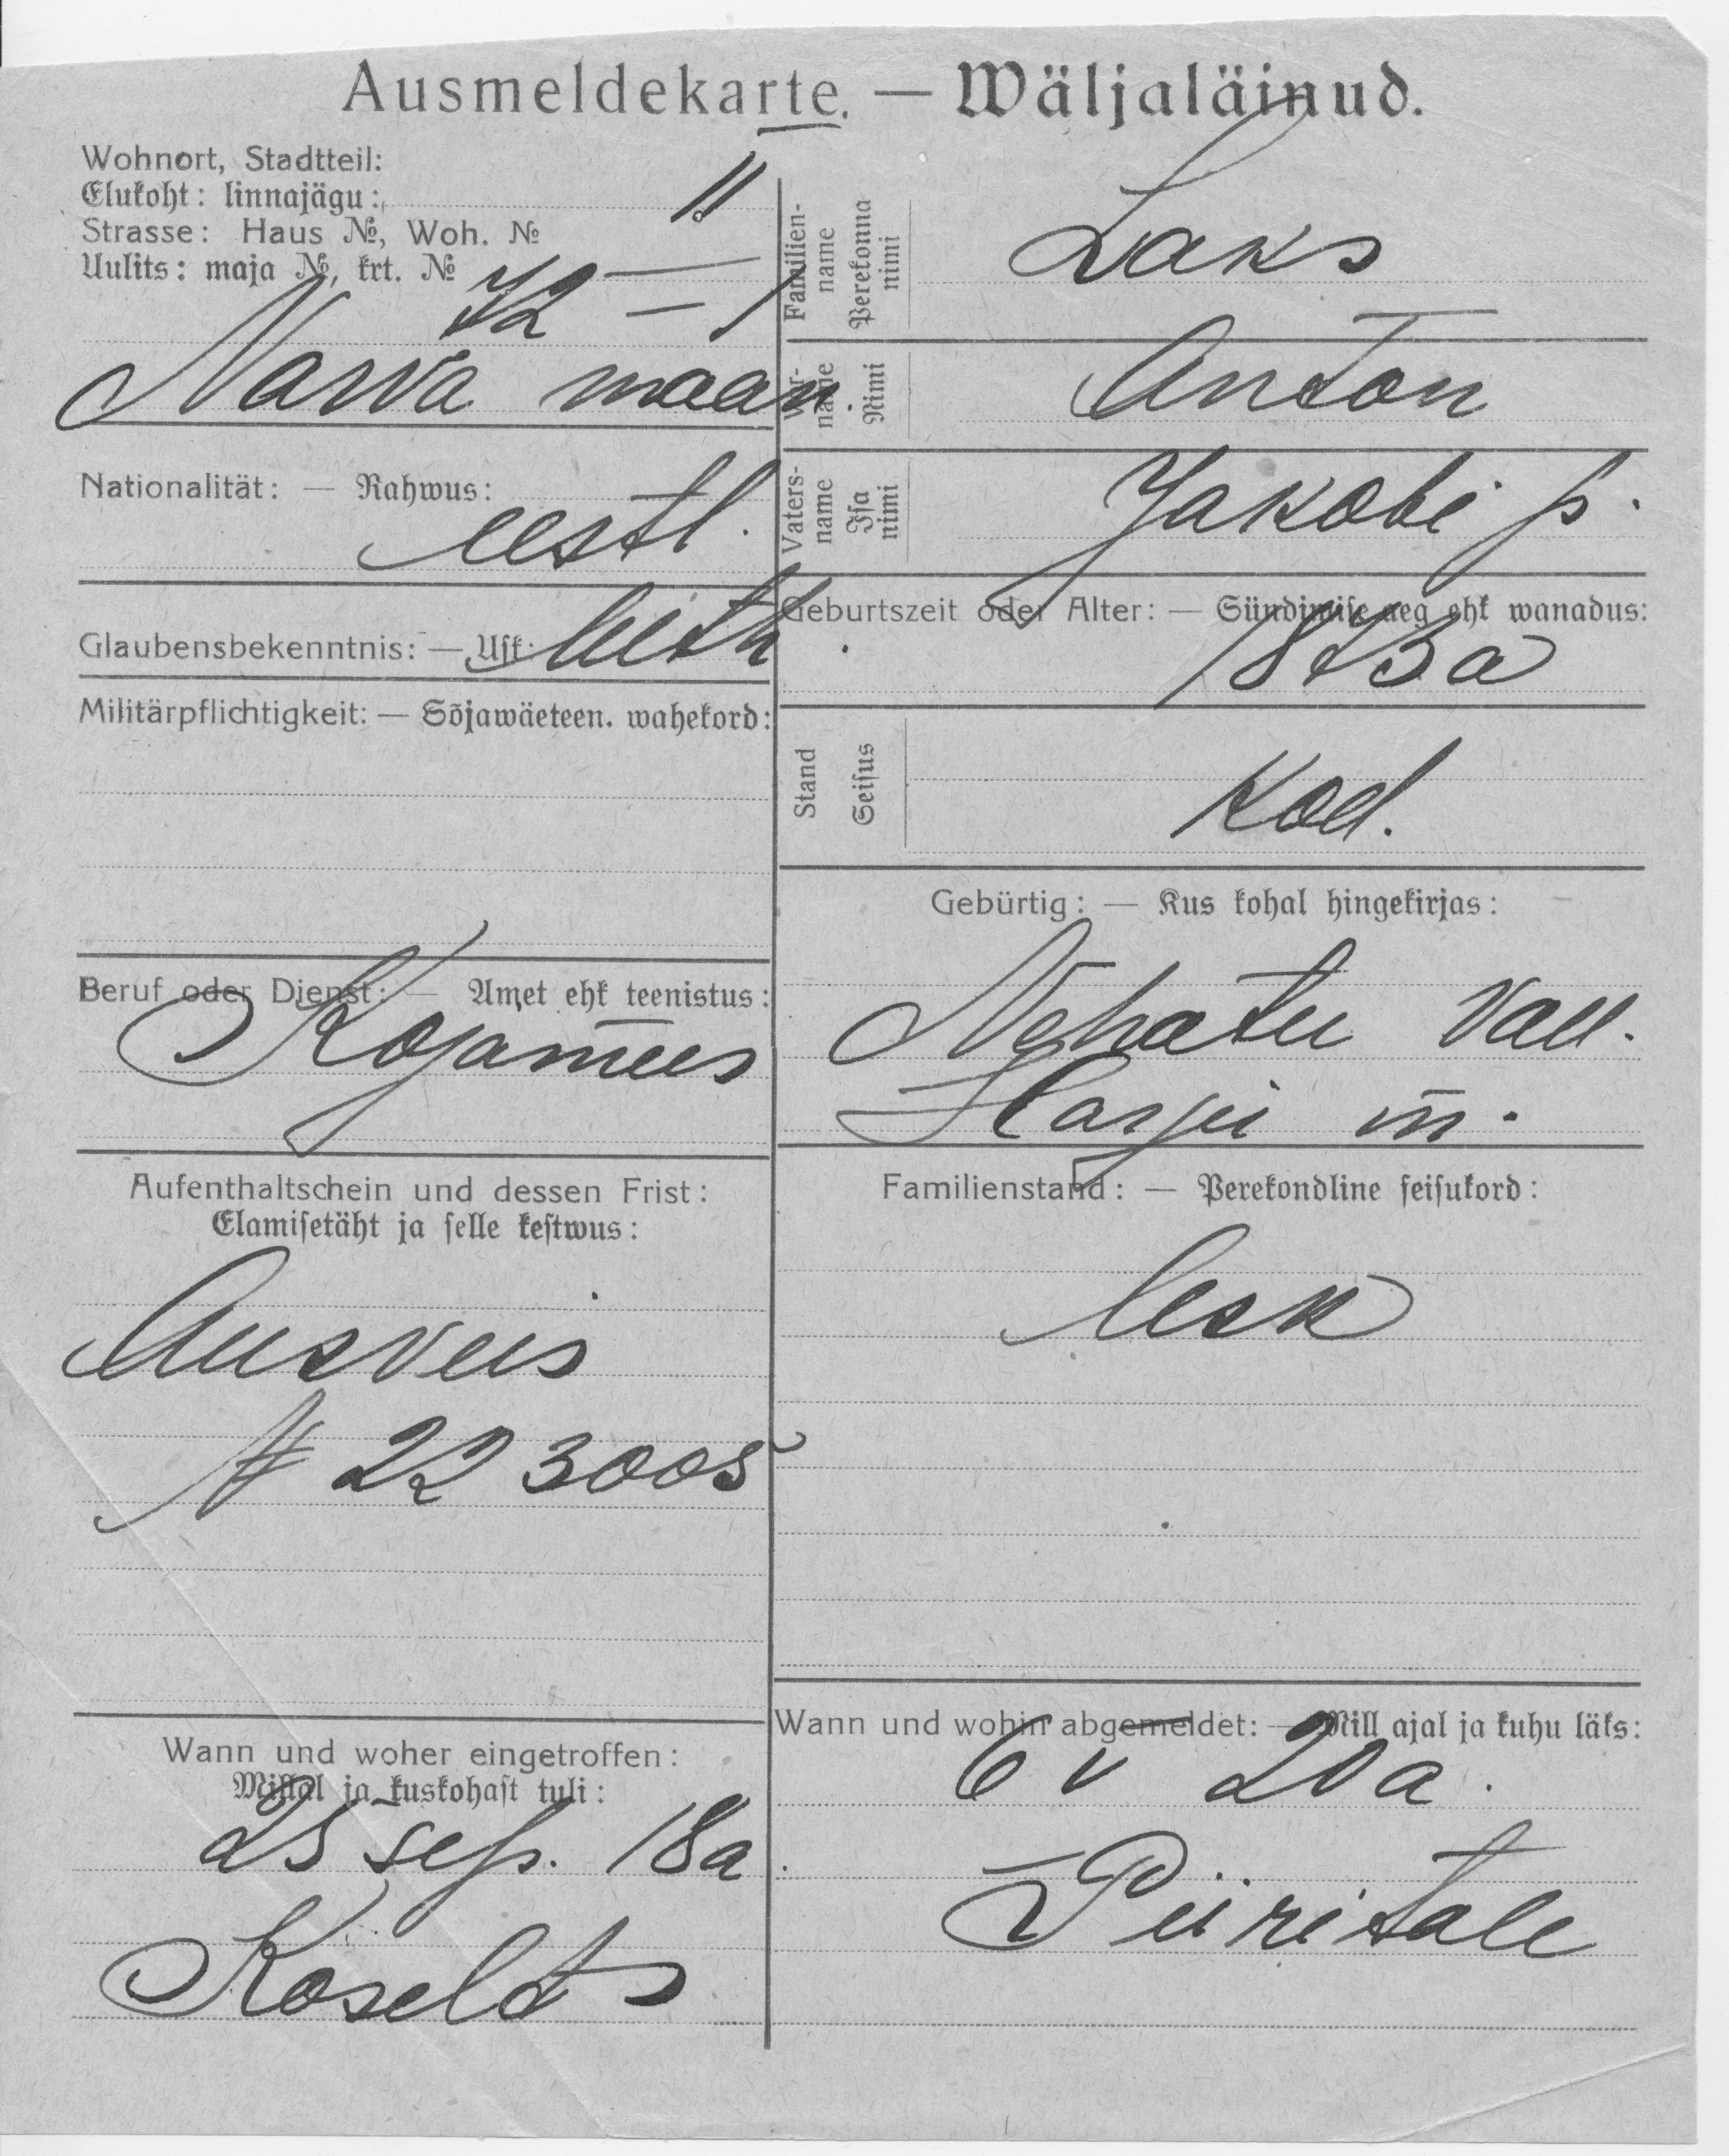 Ausmeldekarte. — Wäljaläinud.
Wohnort, Stadtteil:
Elukoht: linnajägu: II
Strasse: Haus №, Woh. №
Uulits: maja №, krt. №
72 — 1
Narva maan
Nationalität: — Rahwus:
eestl.
Glaubensbekenntnis: — Usk: luth.
Militärpflichtigkeit: — Sõjawäeteen. wahekord:
Beruf oder Dienst: — Amet ehk teenistus:
Kojamees
Aufenthaltschein und dessen Frist:
Elamisetäht ja selle kestwus:
Ausveis
№ 223005
Wann und woher eingetroffen:
Millal ja kuskohast tuli:
25 sep. 18a.
Koselt
Familien-
name
Perekonna
nimi
Laks
Vor-
name
Nimi
Anton
Vaters-
name
Isa
nimi
Jakobi p.
Geburtszeit oder Alter: — Sündimise aeg ehk wanadus:
1873 a
Stand
Seisus
Kod.
Gebürtig: — Kus kohal hingekirjas:
Nehatu vall.
Harju m.
Familienstand: — Perekondline seisukord:
lesk
Wann und wohin abgemeldet: — Mill ajal ja kuhu läks:
6 V 20 a.
Piiritale